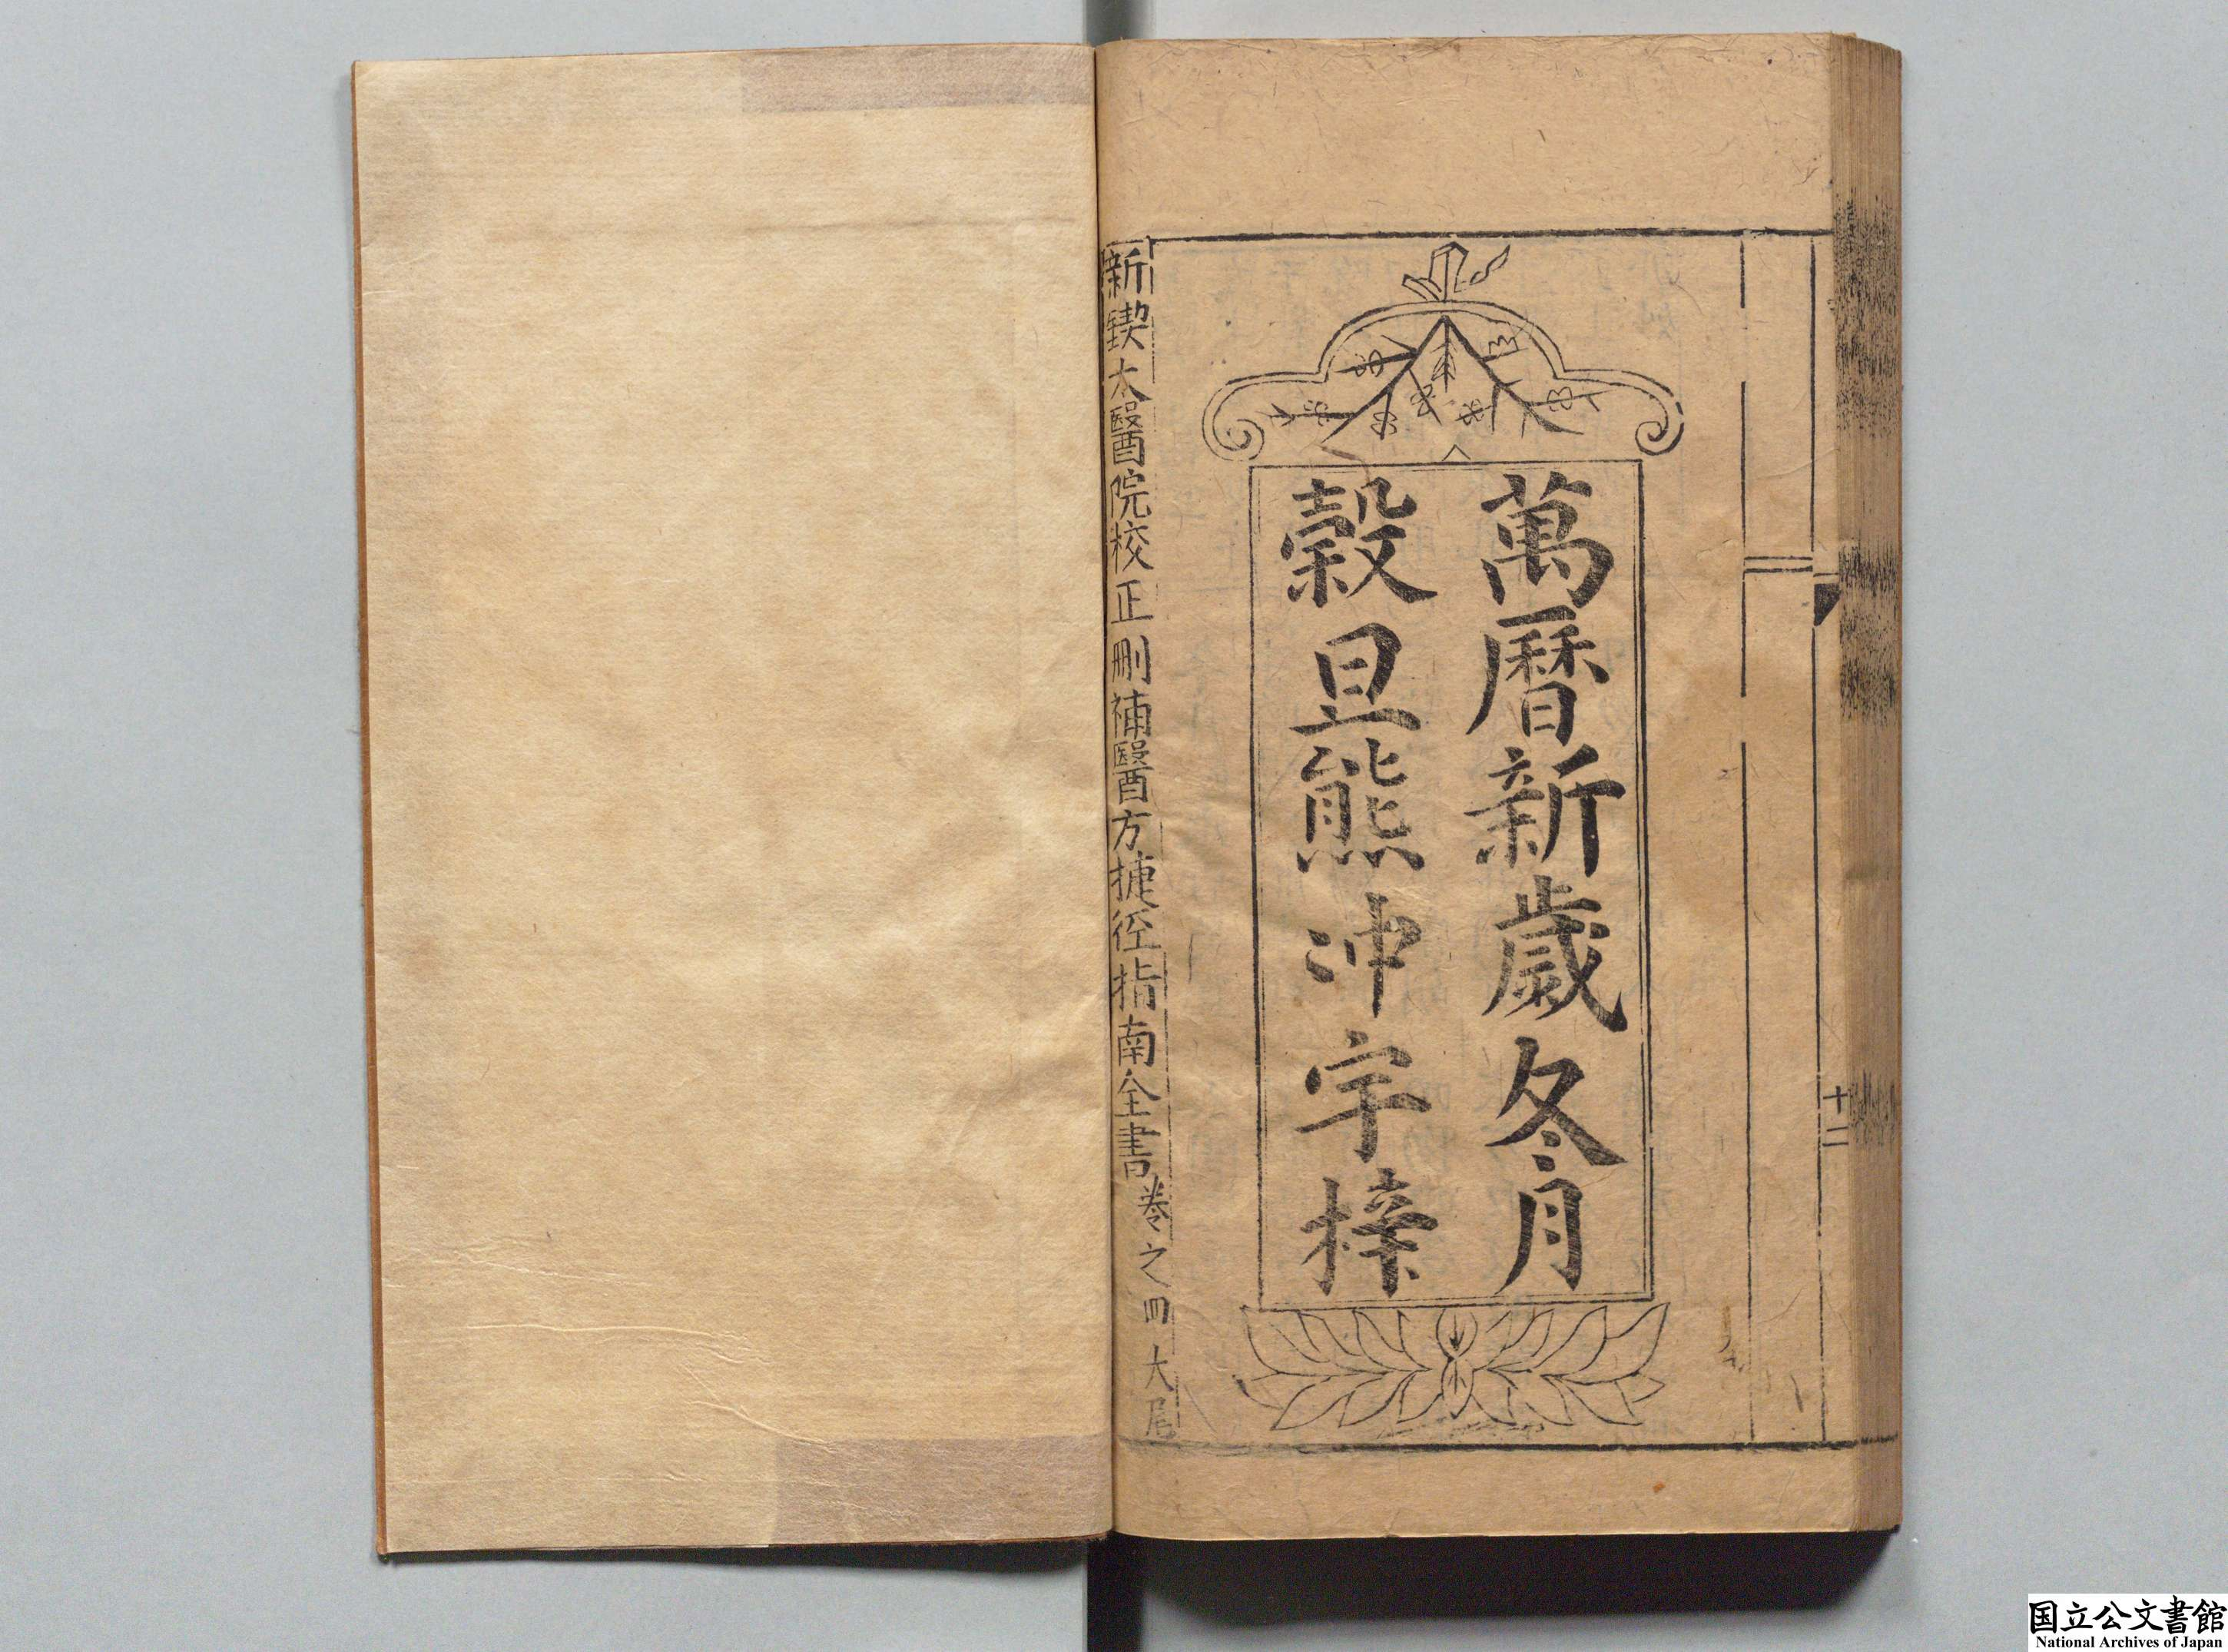 十二
萬曆新歲冬月
穀旦熊冲宇梓
新鍥太醫院校正刪補醫方捷徑指南全書卷之四大尾
国立公文書館
National Archives of Japan